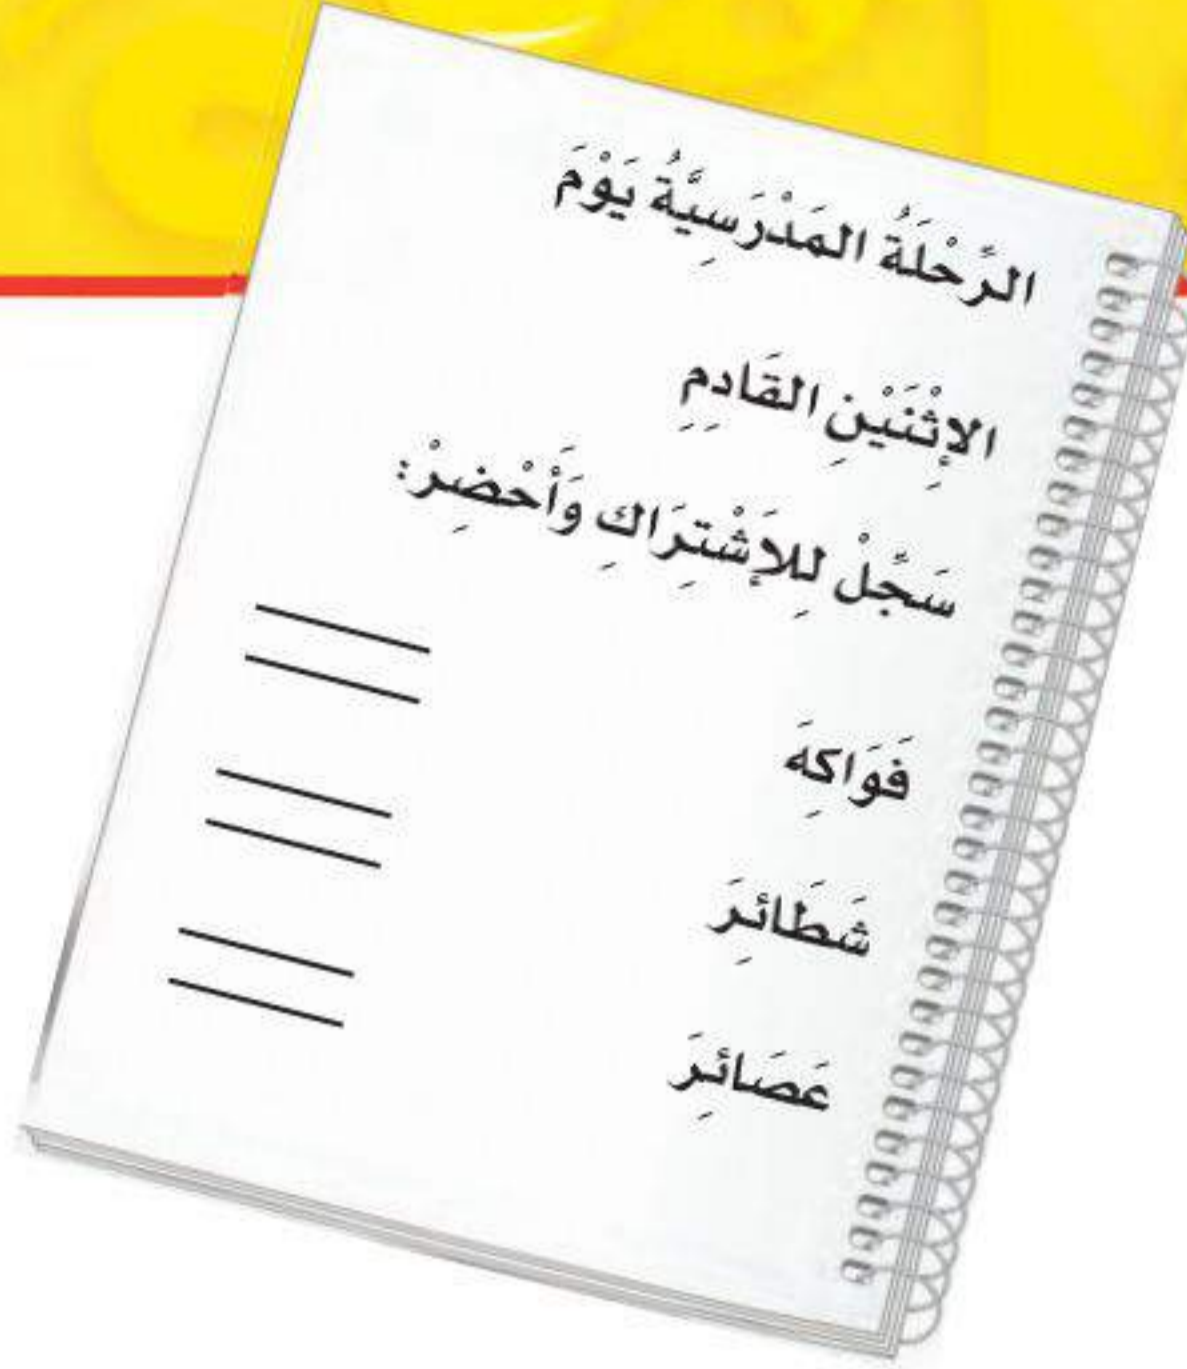 الرِّحْلَةُ المَدْرَسِيَّةُ يَوْمَ
الإِثْنَيْنِ القَادِمِ
سَجِّلْ لِلإِشْتِرَاكِ وَأَحْضِرْ:
فَوَاكِهَ
شَطَائِرَ
عَصَائِرَ